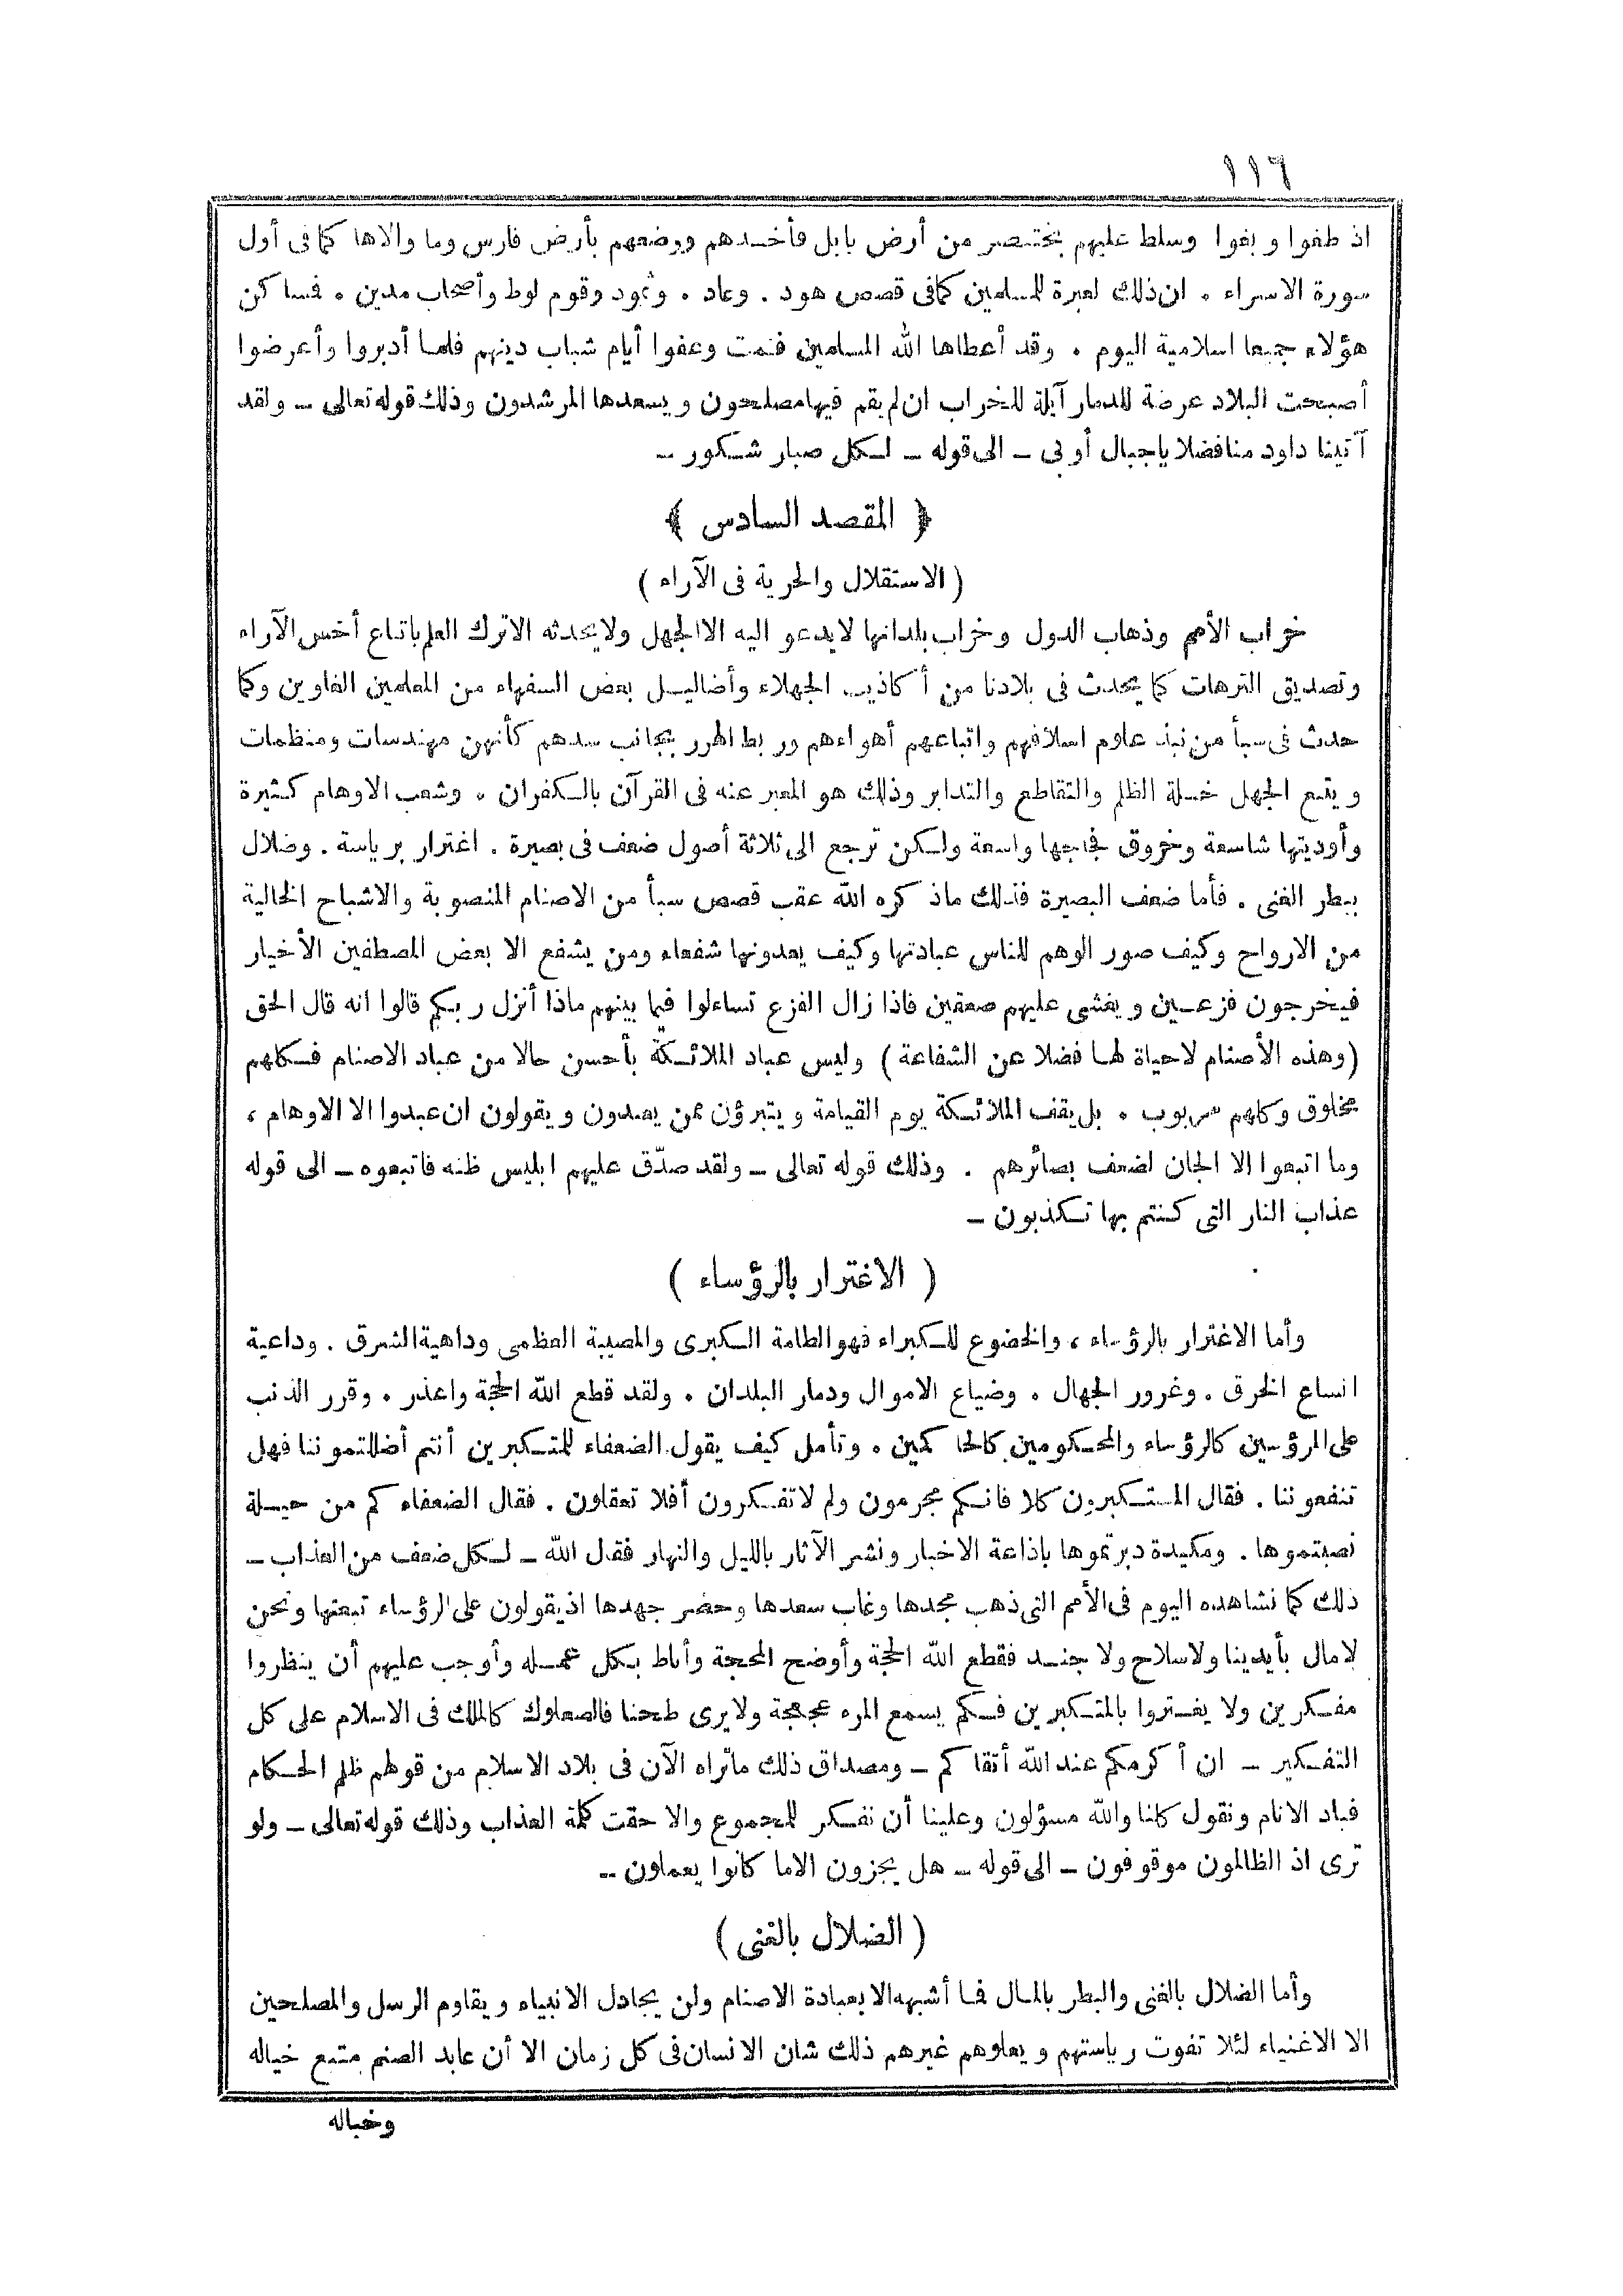 ١١٦
اذ طغوا وبغوا وسلط عليهم بختنصر من أرض بابل فأخذهم ووضعهم بأرض فارس وما والاها كما فى أول
سورة الاسراء . ان ذلك لعبرة للمسلمين كما فى قصص هود . وعاد . وثمود وقوم لوط وأصحاب مدين . فمساكن
هؤلاء جميعا اسلامية اليوم . وقد أعطاها الله المسلمين فنمت وعفوا أيام شباب دينهم فلما أدبروا وأعرضوا
أصبحت البلاد عرضة للدمار آيلة للخراب ان لم يقم فيها مصلحون ويسعدها المرشدون وذلك قوله تعالى ــ ولقد
آتينا داود منا فضلا ياجبال أوبى ــ الى قوله ــ لكل صبار شكور ــ
﴿ المقصد السادس ﴾
(الاستقلال والحرية فى الآراء)
خراب الأمم وذهاب الدول وخراب بلدانها لا يدعو اليه الا الجهل ولا يحدثه الا ترك العلم باتباع أخس الآراء
وتصديق الترهات كما يحدث فى بلادنا من أكاذيب الجهلاء وأضاليل بعض السفهاء من المعلمين الغاوين وكما
حدث فى سبأ من نبذ علوم اسلافهم واتباعهم أهواءهم وربط الهرر بجانب سدهم كأنهن مهندسات ومنظمات
ويتبع الجهل خصلة الظلم والتقاطع والتدابر وذلك هو المعبر عنه فى القرآن بالكفران . وشعب الاوهام كثيرة
وأوديتها شاسعة وخروق فجاجها واسعة ولكن ترجع الى ثلاثة أصول ضعف فى بصيرة . اغترار برياسة . وضلال
ببطر الغنى . فأما ضعف البصيرة فذلك ماذكره الله عقب قصص سبأ من الاصنام المنصوبة والاشباح الخالية
من الارواح وكيف صور الوهم للناس عبادتها وكيف يعدونها شفعاء ومن يشفع الا بعض المصطفين الأخيار
فيخرجون فزعين ويغشى عليهم صعقين فاذا زال الفزع تساءلوا فيما بينهم ماذا أنزل ربكم قالوا انه قال الحق
(وهذه الأصنام لاحياة لها فضلا عن الشفاعة) وليس عباد الملائكة بأحسن حالا من عباد الاصنام فكلهم
مخلوق وكلهم مربوب . بل يقف الملائكة يوم القيامة ويتبرؤن ممن يعبدون ويقولون ان عبدوا الا الاوهام ،
وما اتبعوا الا الجان لضعف بصائرهم . وذلك قوله تعالى ــ ولقد صدّق عليهم ابليس ظنه فاتبعوه ــ الى قوله
عذاب النار التى كنتم بها تكذبون ــ
( الاغترار بالرؤساء )
وأما الاغترار بالرؤساء ، والخضوع للكبراء فهو الطامة الكبرى والمصيبة العظمى وداهية الشرق . وداعية
اتساع الخرق . وغرور الجهال . وضياع الاموال ودمار البلدان . ولقد قطع الله الحجة واعذر . وقرر الذنب
على المرؤسين كالرؤساء والمحكومين كالحاكمين . وتأمل كيف يقول الضعفاء للمتكبرين أنتم أضللتموننا فهل
تنفعوننا . فقال المستكبرون كلا فانكم مجرمون ولم لاتفكرون أفلا تعقلون . فقال الضعفاء كم من حيلة
نصبتموها . ومكيدة دبرتموها باذاعة الاخبار ونشر الآثار بالليل والنهار فقال الله ــ لكل ضعف من العذاب ــ
ذلك كما نشاهده اليوم فى الأمم التى ذهب مجدها وغاب سعدها وحضر جهدها اذ يقولون على الرؤساء تبعتها ونحن
لامال بأيدينا ولاسلاح ولا جند فقطع الله الحجة وأوضح المحجة وأناط بكل عمله وأوجب عليهم أن ينظروا
مفكرين ولا يغتروا بالمتكبرين فكم يسمع المرء عجعجة ولايرى طحنا فالصعلوك كالملك فى الاسلام على كل
التفكير ــ ان أكرمكم عند الله أتقاكم ــ ومصداق ذلك ماتراه الآن فى بلاد الاسلام من قولهم ظلم الحكام
فباد الانام ونقول كلنا والله مسؤلون وعلينا أن نفكر للمجموع والا حقت كلمة العذاب وذلك قوله تعالى ــ ولو
ترى اذ الظالمون موقوفون ــ الى قوله ــ هل يجزون الا ما كانوا يعملون ــ
( الضلال بالغنى )
وأما الضلال بالغنى والبطر بالمال فما أشبهه الا بعبادة الاصنام ولن يجادل الانبياء ويقاوم الرسل والمصلحين
الا الاغنياء لئلا تفوت رياستهم ويعلوهم غيرهم ذلك شان الانسان فى كل زمان الا أن عابد الصنم متبع خياله
وخباله